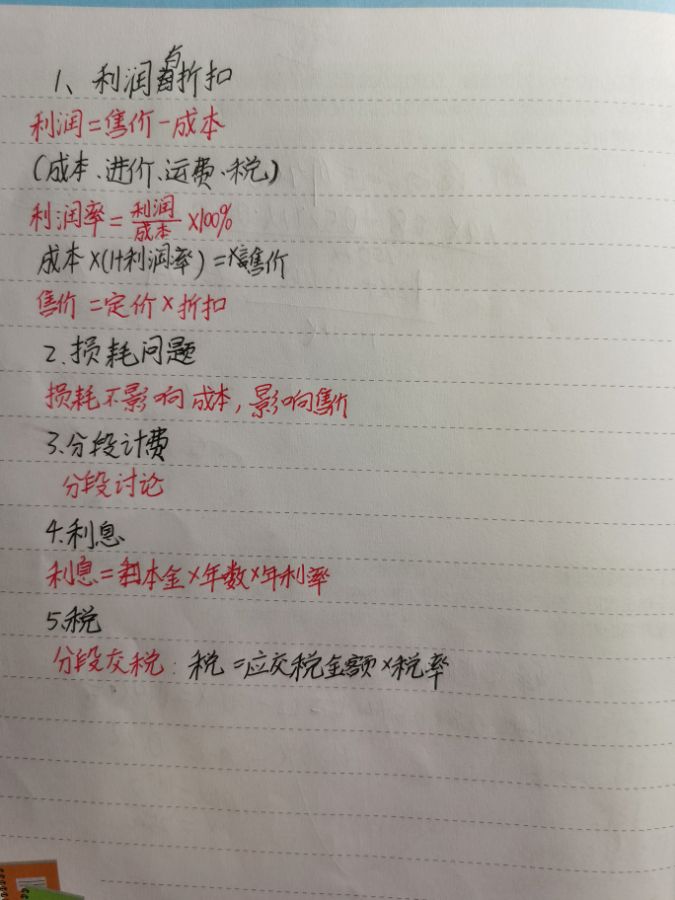 1、利润与折扣
利润=售价-成本
(成本、进价、运费、税)
利润率=利润/成本×100%
成本×(1+利润率)=售价
售价=定价×折扣
2.损耗问题
损耗不影响成本,影响售价
3.分段计费
分段讨论
4.利息
利息=本金×年数×年利率
5.税
分段交税:税=应交税金额×税率